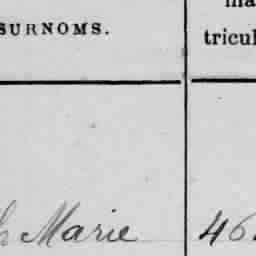 SURNOMS.
tricul
Marie 46